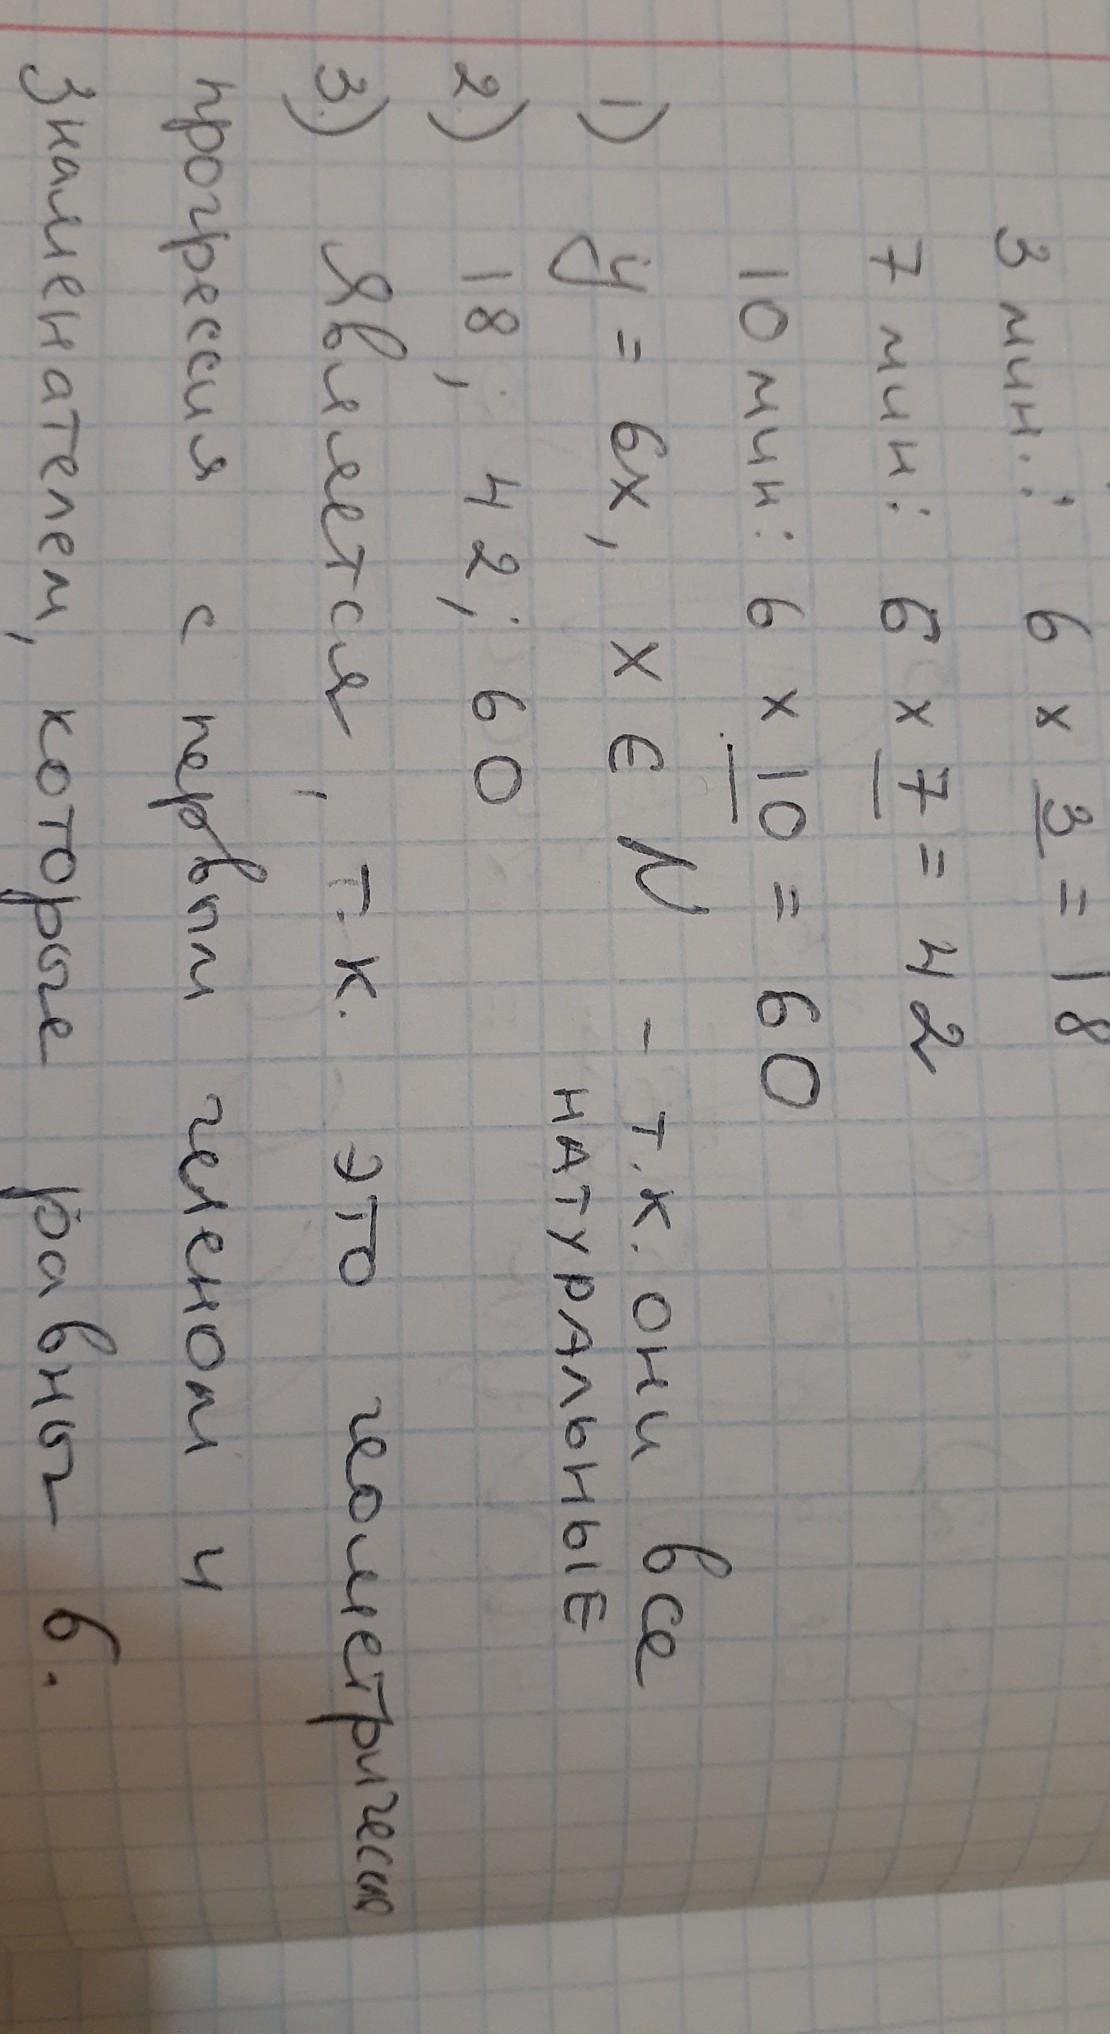 3 мин: 6 x 3 = 18
7 мин: 6 x 7 = 42
10 мин: 6 x 10 = 60
1) y = 6x, x ∈ N - т.к. они все
НАТУРАЛЬНЫЕ
2) 18; 42; 60
3) Является, т.к. это геометрическая
прогрессия с первым членом и
знаменателем, которые равны 6.